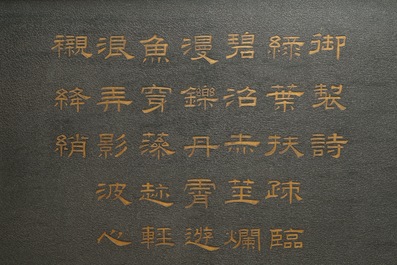 御製詩
綠葉扶疎臨
碧沼赤莖爛
漫鑠丹霄遊
魚穿藻趂輕
浪弄影波心
襯絳綃